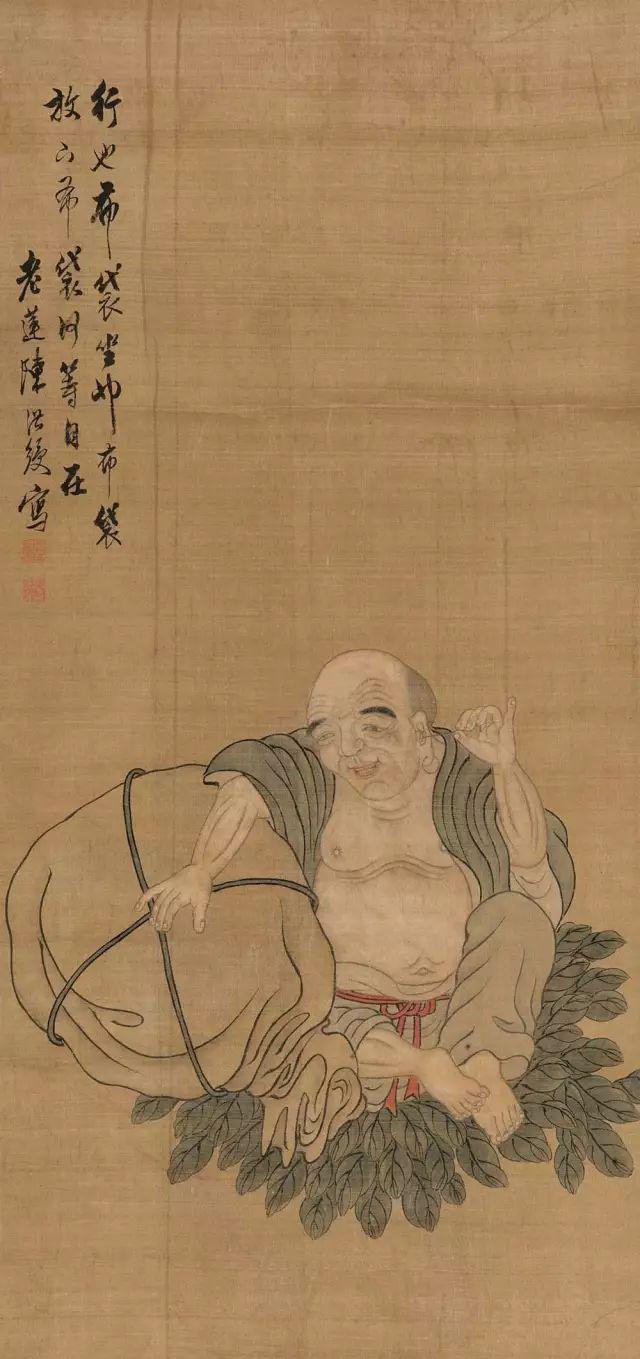 行也布袋坐也布袋
放下布袋何等自在
老蓮陳洪綬寫